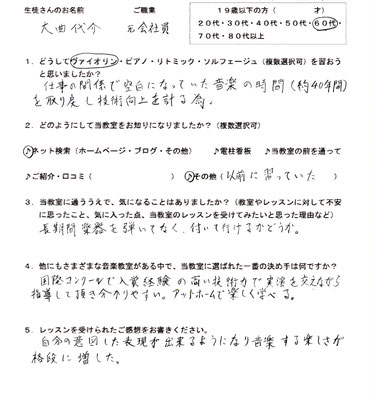 生徒さんのお名前　ご職業　１９歳以下の方（　才）
大曲代介　元会社員　２０代・３０代・４０代・５０代・６０代・
７０代・８０代以上
１．どうしてヴァイオリン・ピアノ・リトミック・ソルフェージュ（複数選択可）を習おう
と思いましたか？
仕事の関係で空白になっていた音楽の時間（約40年間）
を取り戻し技術向上を計る為。
２．どのようにして当教室をお知りになりましたか？（複数選択可）
♪ネット検索（ホームページ・ブログ・その他）　♪電柱看板　♪当教室の前を通って
♪ご紹介・口コミ（　）　♪その他（以前に習っていた）
３．当教室に通ううえで、気になることはありましたか？（教室やレッスンに対して不安
に思ったこと、気に入った点、当教室のレッスンを受けてみたいと思った理由など）
長期間楽器を弾いてなく、付いて行けるかどうか。
４．他にもさまざまな音楽教室がある中で、当教室に選ばれた一番の決め手は何ですか？
国際コンクールで入賞経験の高い技術力で実演を交えながら
指導して頂き分かりやすい。アットホームで楽しく学べる。
５．レッスンを受けられたご感想をお書きください。
自分の意図した表現が出来るようになり音楽する楽しさが
格段に増した。